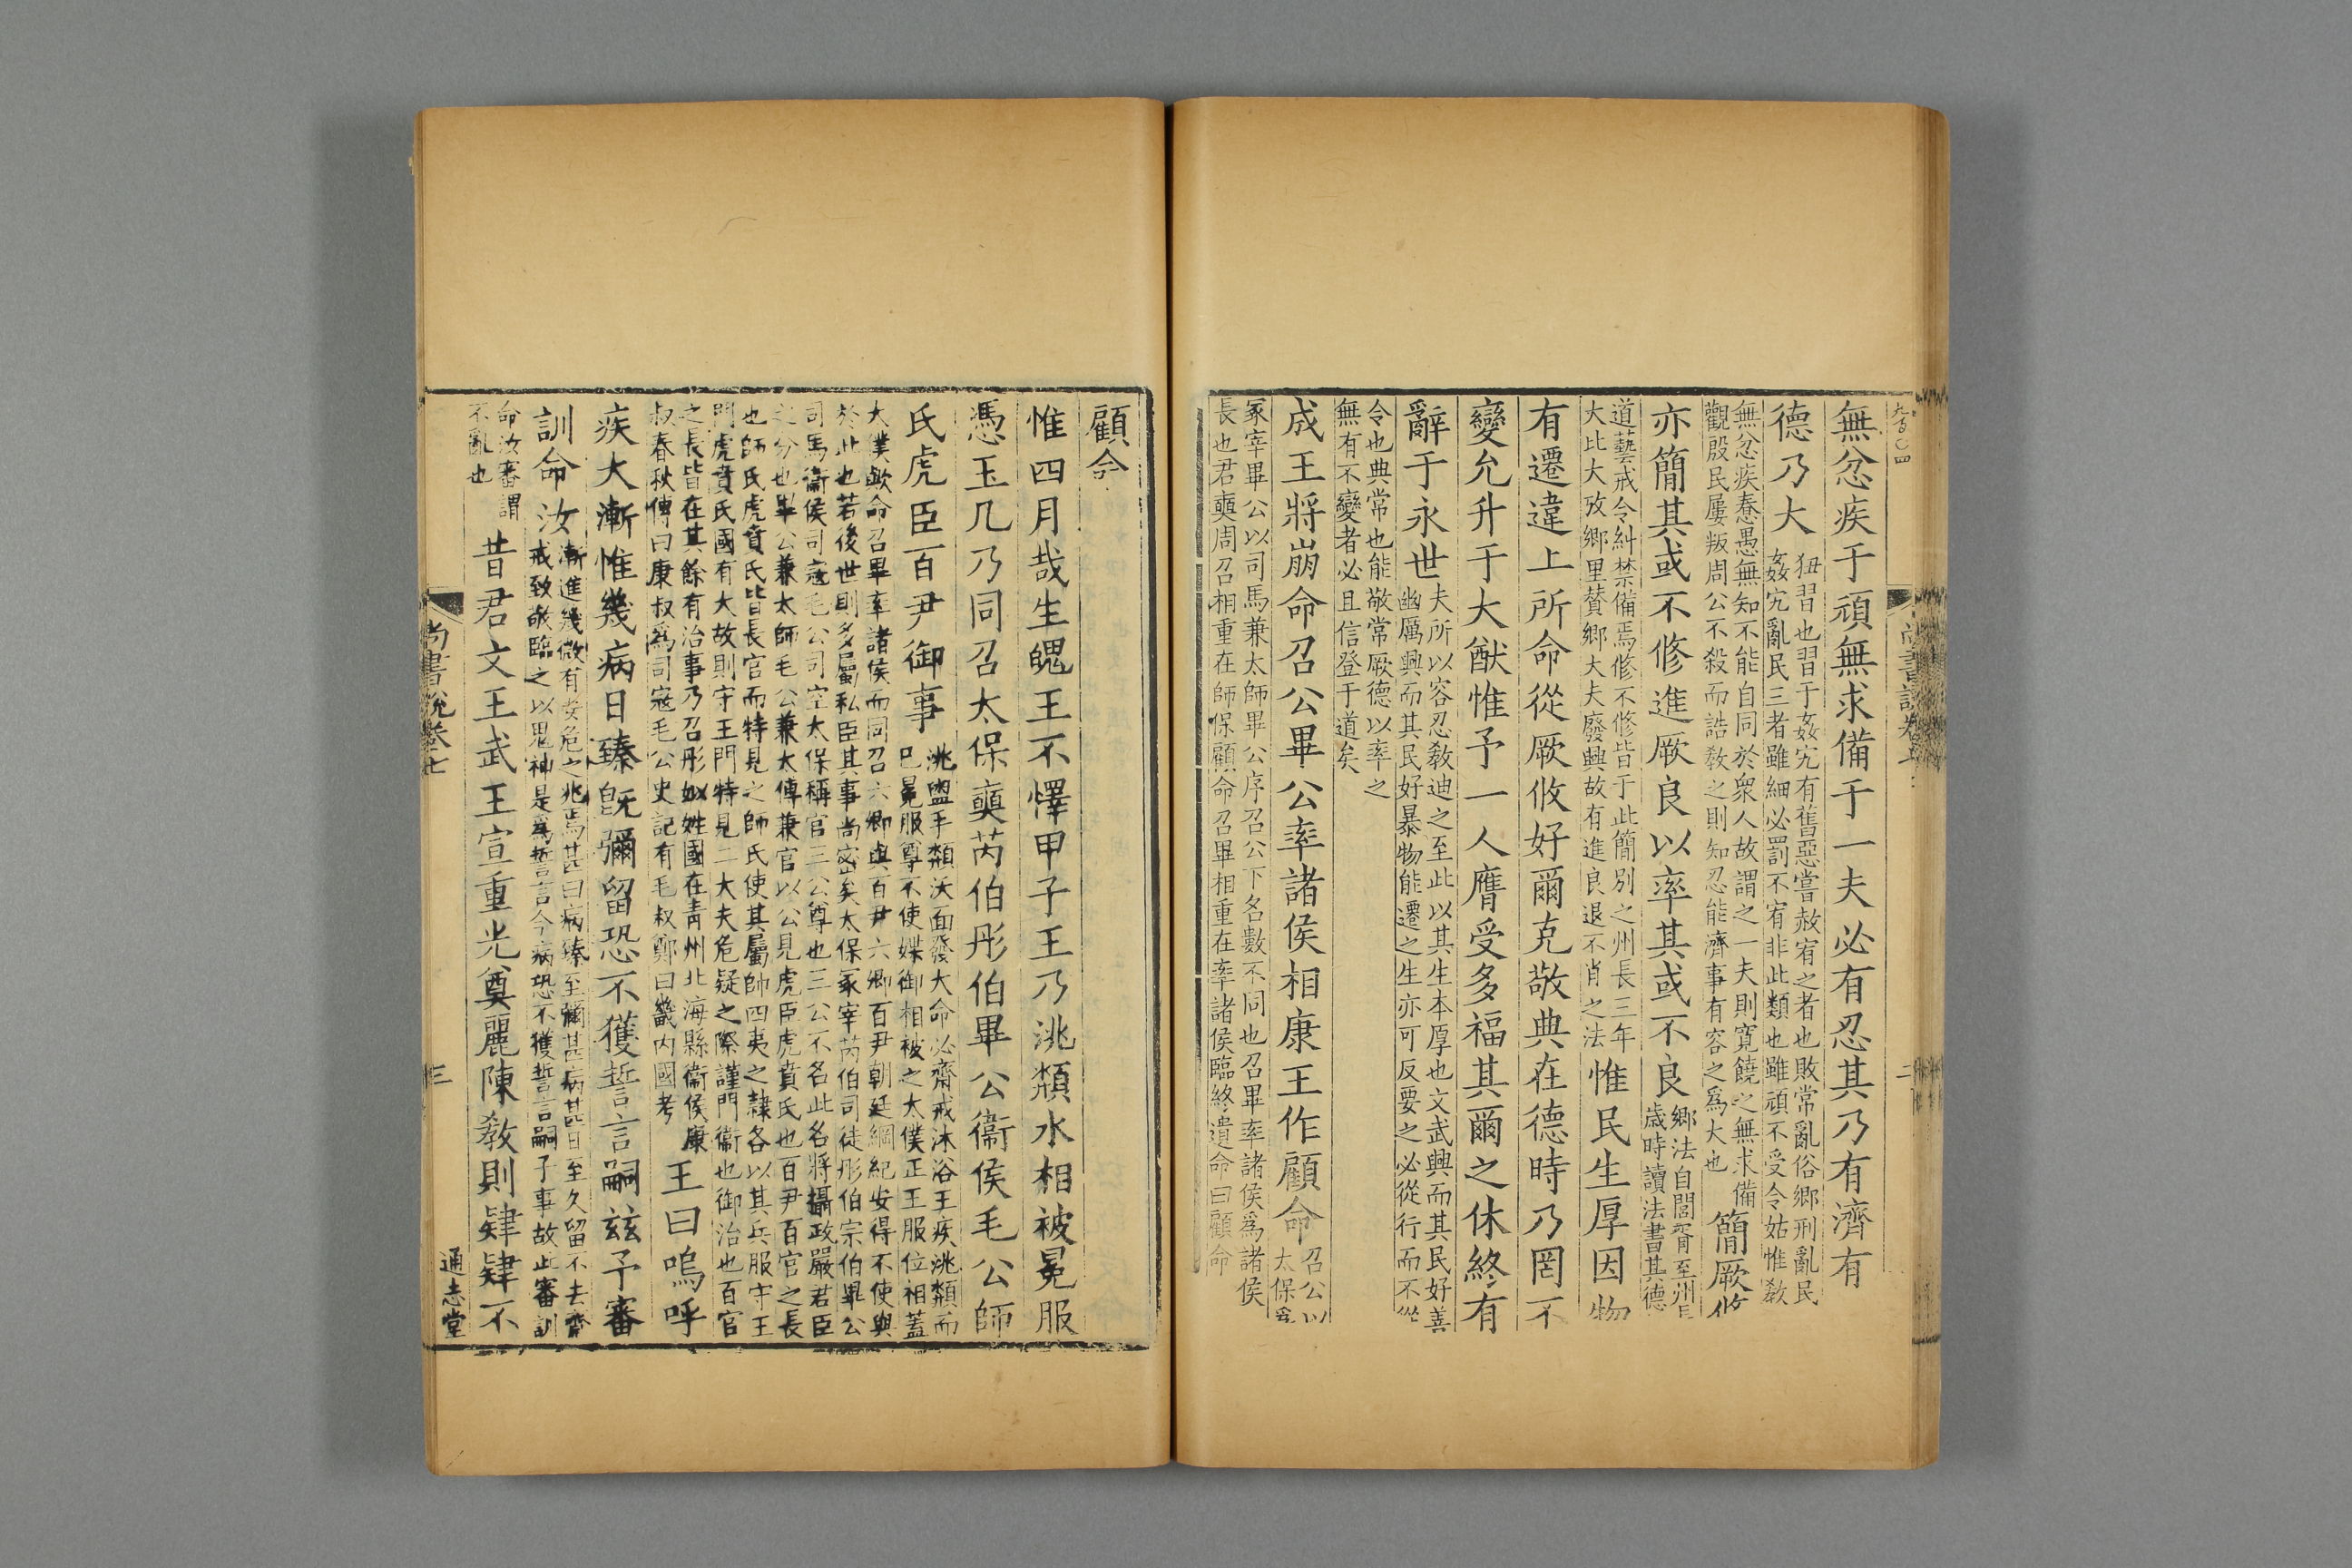 無忿疾于頑無求備于一夫必有忍其乃有濟有
德乃大
狃習也習于姦宄有舊惡嘗赦宥之者也敗常亂俗鄉刑亂民
姦宄亂民三者雖細必罰不宥非此類也雖頑不受令姑惟敎
無忿疾惷愚無知不能自同於衆人故謂之一夫則寬饒之無求備
觀殷民屢叛周公不殺而誥敎之則知忍能濟事有容之爲大也
簡厥修
亦簡其或不修進厥良以率其或不良
鄉法自閭胥至州長
歲時讀法書其德
道藝戒令糾禁備焉修不修皆于此簡別之州長三年
大比大攷鄉里賛鄉大夫廢興故有進良退不肖之法
惟民生厚因物
有遷違上所命從厥攸好爾克敬典在德時乃罔不
變允升于大猷惟予一人膺受多福其爾之休終有
辭于永世
夫所以容忍敎迪之至此以其生本厚也文武興而其民好善
幽厲興而其民好暴物能遷之生亦可反要之必從行而不從
令也典常也能敬常厥德以率之
無有不變者必且信登于道矣
成王將崩命召公畢公率諸侯相康王作顧命
召公以
太保爲
冢宰畢公以司馬兼太師畢公序召公下名數不同也召畢率諸侯爲諸侯
長也君奭周召相重在師保顧命召畢相重在率諸侯臨終遺命曰顧命
顧命
惟四月哉生魄王不懌甲子王乃洮頮水相被冕服
憑玉几乃同召太保奭芮伯彤伯畢公衞侯毛公師
氏虎臣百尹御事
洮盥手頮沃面發大命必齋戒沐浴王疾洮頮而
已冕服尊不使媟御相被之太僕正王服位相蓋
太僕歟命召畢率諸侯而同召六卿與百尹六卿百尹朝廷綱紀安得不使與
於此也若後世則多屬私臣其事尚密矣太保冢宰芮伯司徒彤伯宗伯畢公
司馬衞侯司寇毛公司空太保稱官三公尊也三公不名此名將攝政嚴君臣
之分也畢公兼太師毛公兼太傅兼官以公見虎臣虎賁氏也百尹百官之長
也師氏虎賁氏皆長官而特見之師氏使其屬帥四夷之隸各以其兵服守王
門虎賁氏國有大故則守王門特見二大夫危疑之際謹門衞也御治也百官
之長皆在其餘有治事乃召彤姒姓國在青州北海縣衞侯康
叔春秋傳曰康叔爲司寇毛公史記有毛叔鄭曰畿內國考
王曰嗚呼
疾大漸惟幾病日臻旣彌留恐不獲誓言嗣茲予審
訓命汝
漸進幾微有安危之兆焉甚曰病臻至彌甚病甚日至久留不去齊
戒致敬臨之以鬼神是爲誓言今病恐不獲誓言嗣子事故此審訓
命汝審謂
不亂也
昔君文王武王宣重光奠麗陳敎則肄肄不
尚書說卷七
三
通志堂